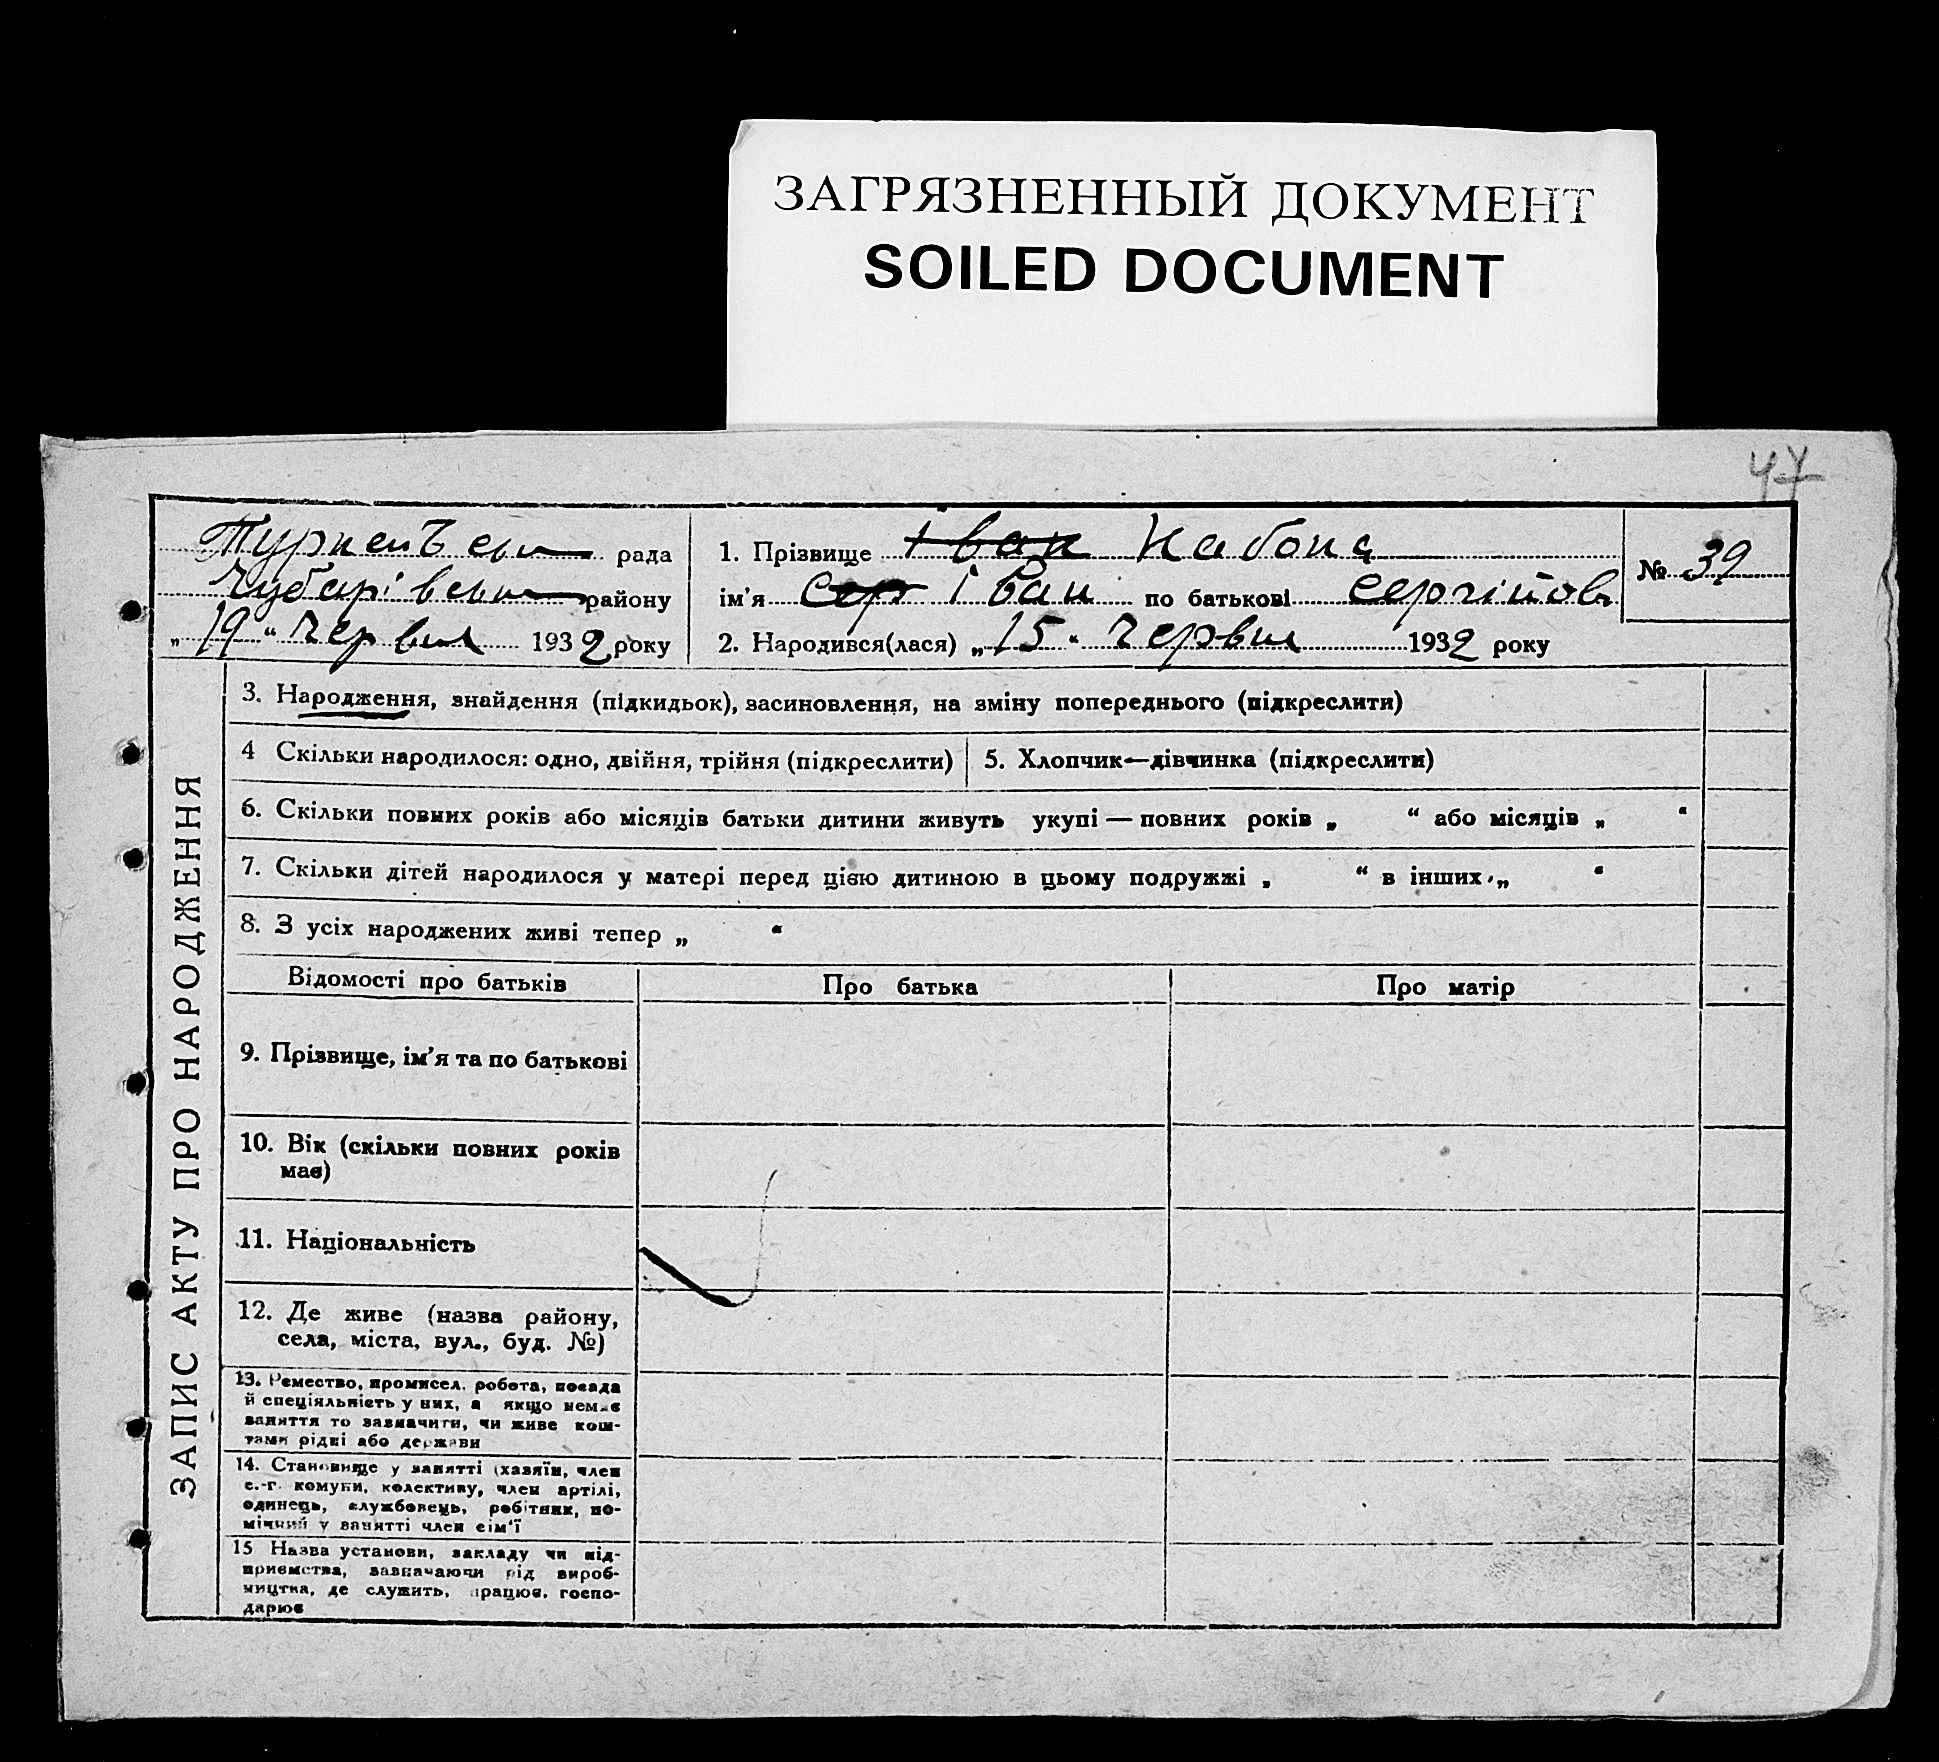 ЗАГРЯЗНЕННЫЙ ДОКУМЕНТ
SOILED DOCUMENT
47
рада
району
„19“ Червня 1932 року
1. Прізвище Іван Набока
ім'я Сер Іван по батькові Сергійов
2. Народився(лася) „15“ Червня 1932 року
№ 39
ЗАПИС АКТУ ПРО НАРОДЖЕННЯ
3. Народження, знайдення (підкидьок), засиновлення, на зміну попереднього (підкреслити)
4 Скільки народилося: одно, двійня, трійня (підкреслити)
5. Хлопчик—дівчинка (підкреслити)
6. Скільки повних років або місяців батьки дитини живуть укупі — повних років „ “ або місяців „ “
7. Скільки дітей народилося у матері перед цією дитиною в цьому подружжі „ “ в інших „ “
8. З усіх народжених живі тепер „ “
Відомості про батьків
Про батька
Про матір
9. Прізвище, ім'я та по батькові
10. Вік (скільки повних років
має)
11. Національність
12. Де живе (назва району,
села, міста, вул., буд. №)
13. Ремество, промисел, робота, посада
й спеціяльність у них, а якщо немає
заняття то зазначити, чи живе кош-
тами рідні або держави
14. Становище у занятті (хазяїн, член
с.-г. комуни, колективу, член артілі,
одинець, службовець, робітник, по-
мічний у занятті член сім'ї
15 Назва установи, закладу чи під-
приємства, зазначаючи рід вироб-
ництва, де служить, працює, госпо-
дарює